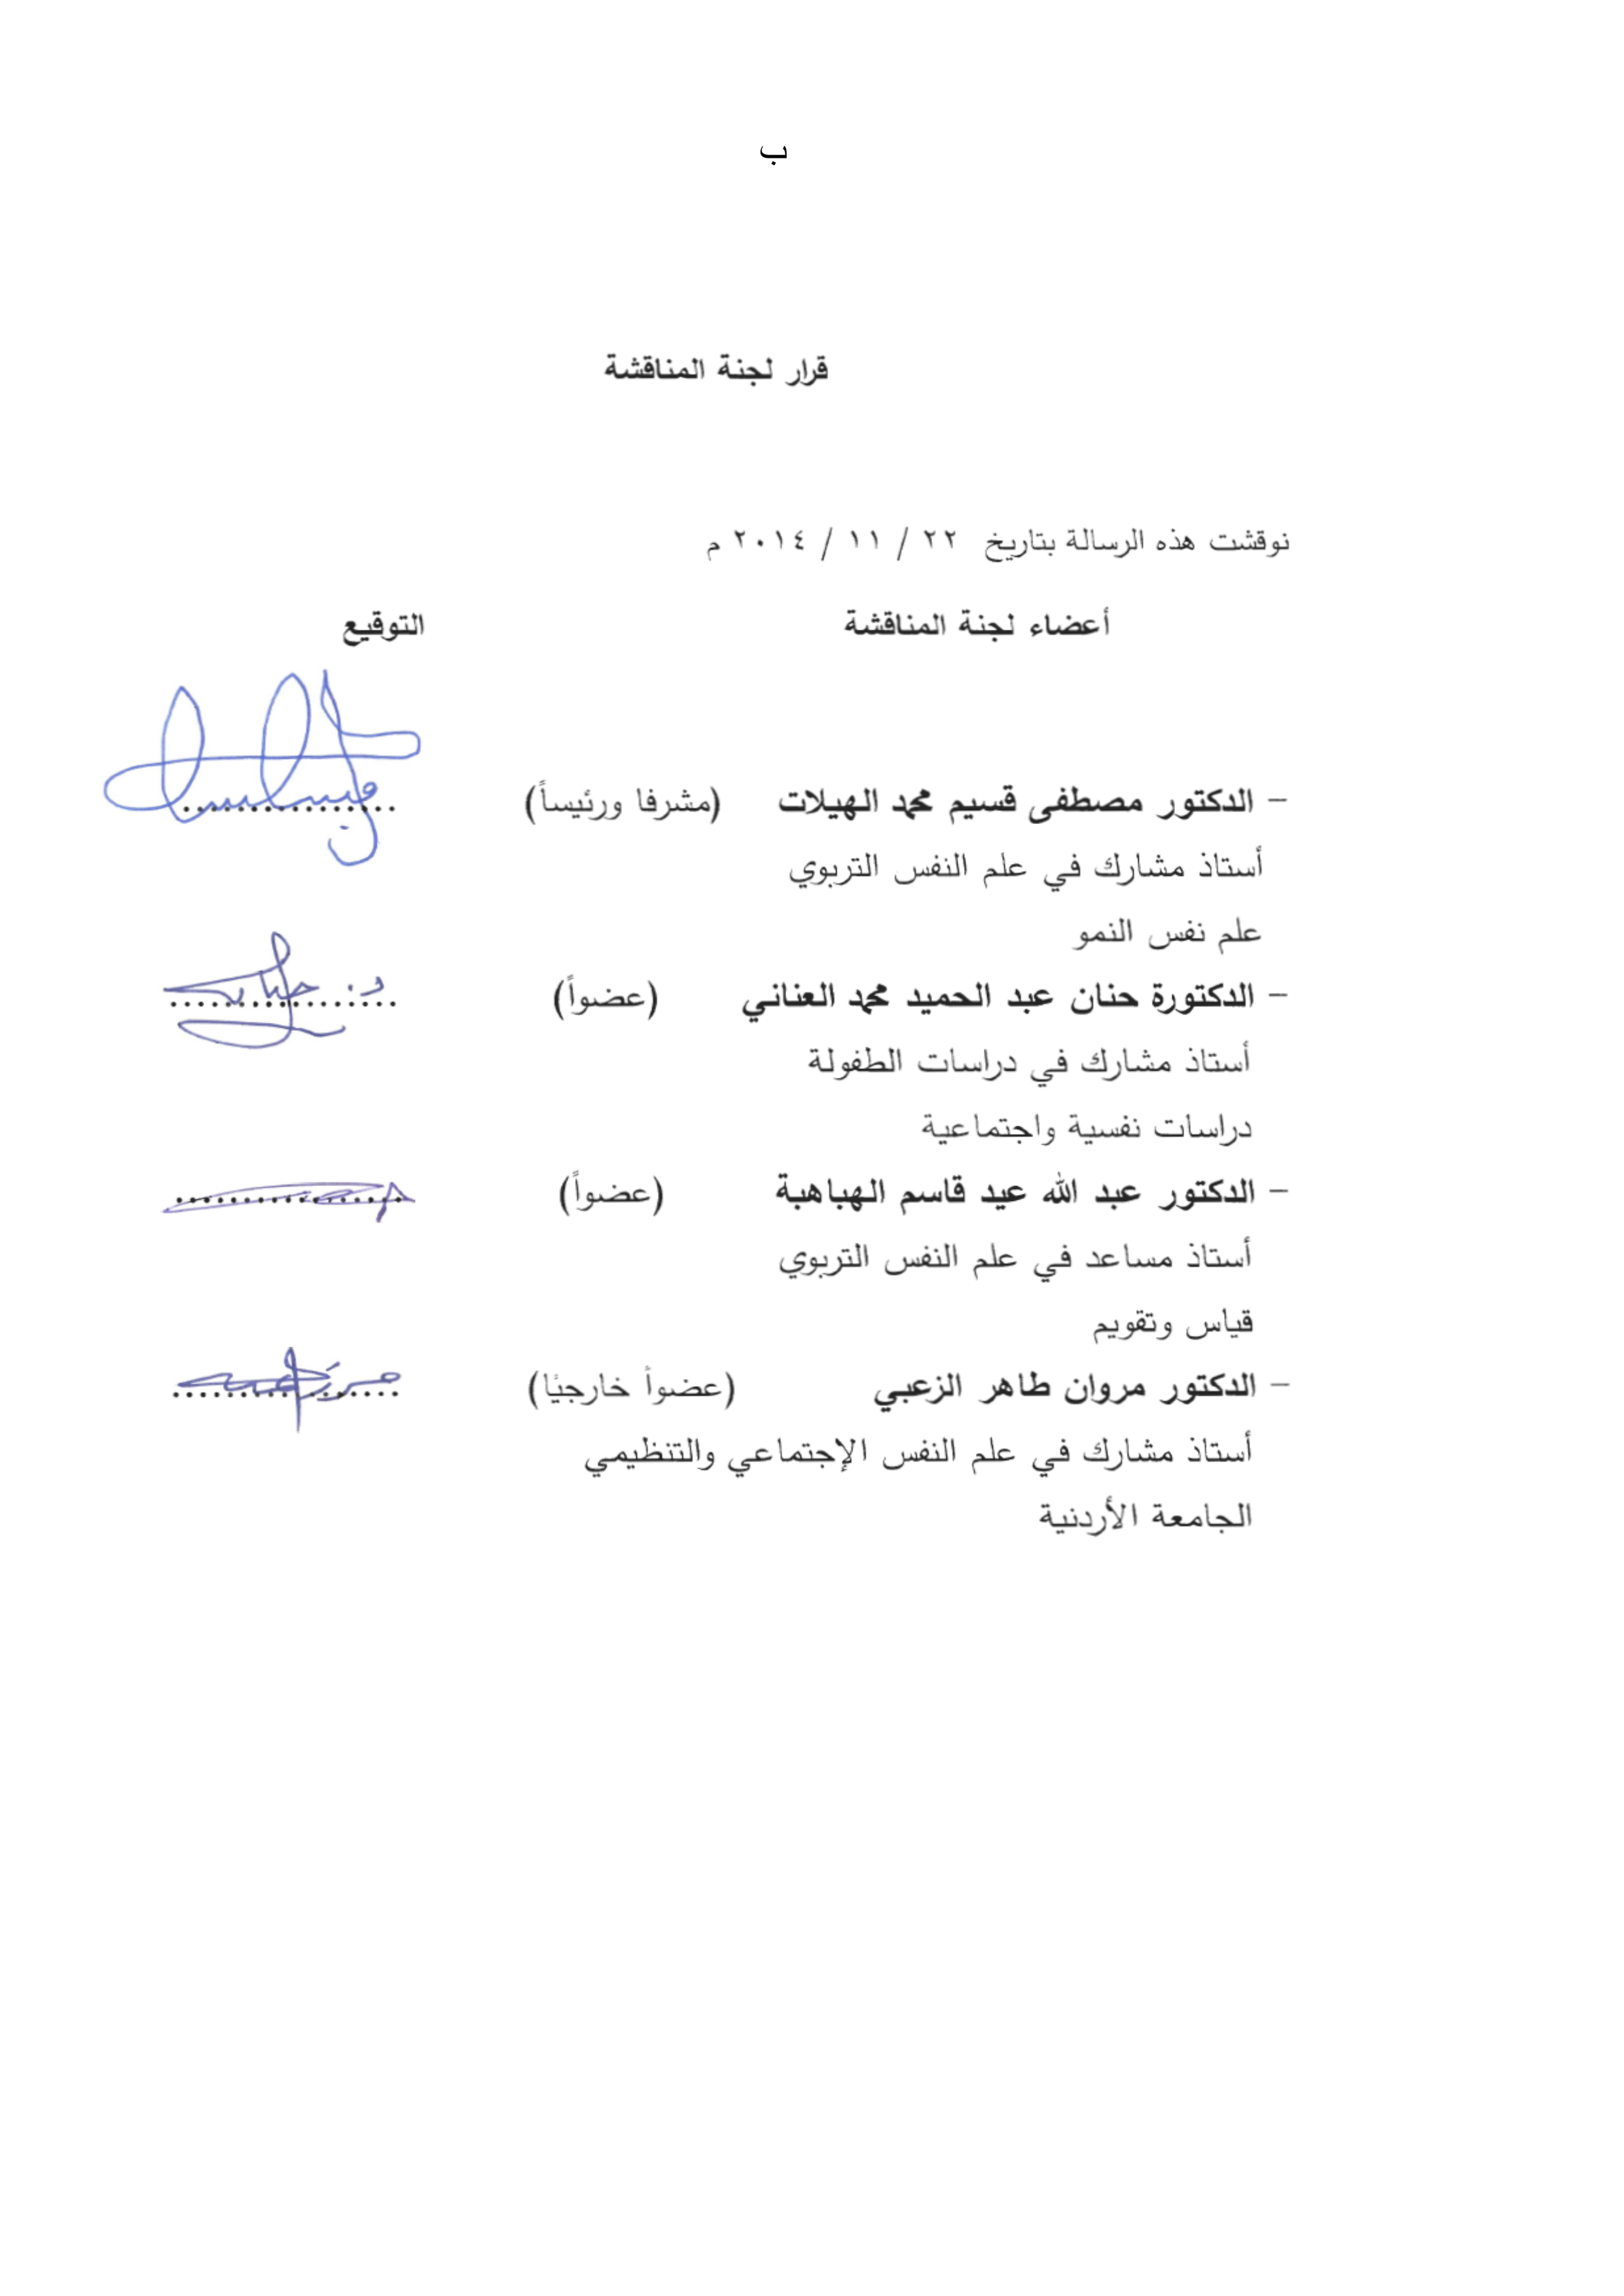 ب
قرار لجنة المناقشة
نوقشت هذه الرسالة بتاريخ ٢٢ / ١١ / ٢٠١٤ م
أعضاء لجنة المناقشة التوقيع
– الدكتور مصطفى قسيم محمد الهيلات (مشرفا ورئيساً) ................
أستاذ مشارك في علم النفس التربوي
علم نفس النمو
– الدكتورة حنان عبد الحميد محمد العناني (عضواً) .................
أستاذ مشارك في دراسات الطفولة
دراسات نفسية واجتماعية
– الدكتور عبد الله عيد قاسم الهباهبة (عضواً) .................
أستاذ مساعد في علم النفس التربوي
قياس وتقويم
– الدكتور مروان طاهر الزعبي (عضواً خارجيًا) .................
أستاذ مشارك في علم النفس الإجتماعي والتنظيمي
الجامعة الأردنية